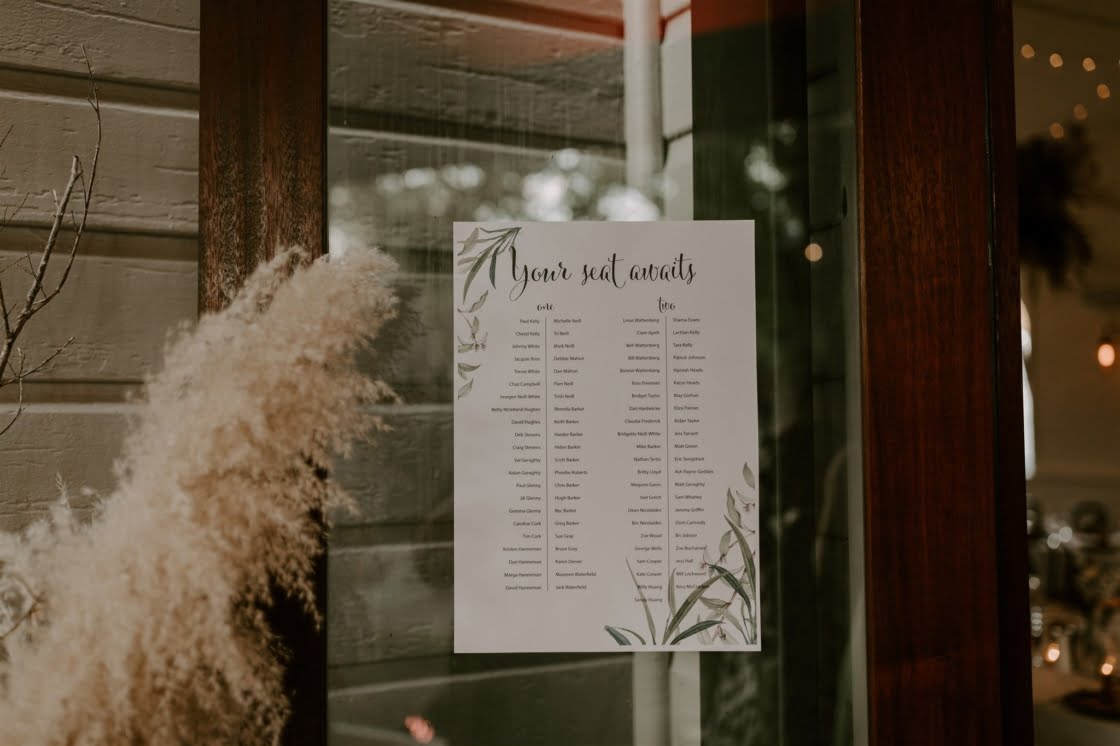 Your seat awaits
one two
Paul Kelly Michelle Neill Linus Wattenberg Shania Evans
Cheryl Kelly TJ Neill Clare Lachlan Kelly
Johnny White Mark Neill Neil Wattenberg Tara Kelly
Jacquie Debbie Mahon Bill Wattenberg Patrick Johnson
Trevor White Dan Mahon Bonnie Wattenberg Hannah Heads
Chaz Campbell Pam Neill Ross Karyn Heads
Imogen Neill-White Trish Neill Bridget Taylor May
Betty McLelland-Hughes Rhonda Barker Dan Hardwicke Eliza
David Hughes Keith Barker Claudia Frederick Robin Taylor
Deb Stevens Hunter Barker Bridgette Neill-White Jess
Craig Stevens Helen Barker Mike Barker Matt Green
Val Geraghty Scott Barker Nathan Eric
Aidan Geraghty Phoebe Roberts Britty Lloyd Ash Payne-Geddes
Paul Glenny Chris Barker Maguire Gavin Matt Geraghty
Jill Glenny Hugh Barker Gavin Sam Whatley
Gemma Glenny Bec Barker Dean Nicolaides Jeremy Griffin
Caroline Cork Greg Barker Bec Nicolaides Dom
Tim Cork Sue Gray Zoe Wood Bri Jobson
Kristen Hanneman Bruce Gray George Wells Zoe Buchanan
Dan Hanneman Karen Glover Sam Cooper Jess Hall
Margo Hanneman Maureen Waterfield Kate Cooper Will Lockwood
David Hanneman Jack Waterfield Billy Huang
Sandy Huang